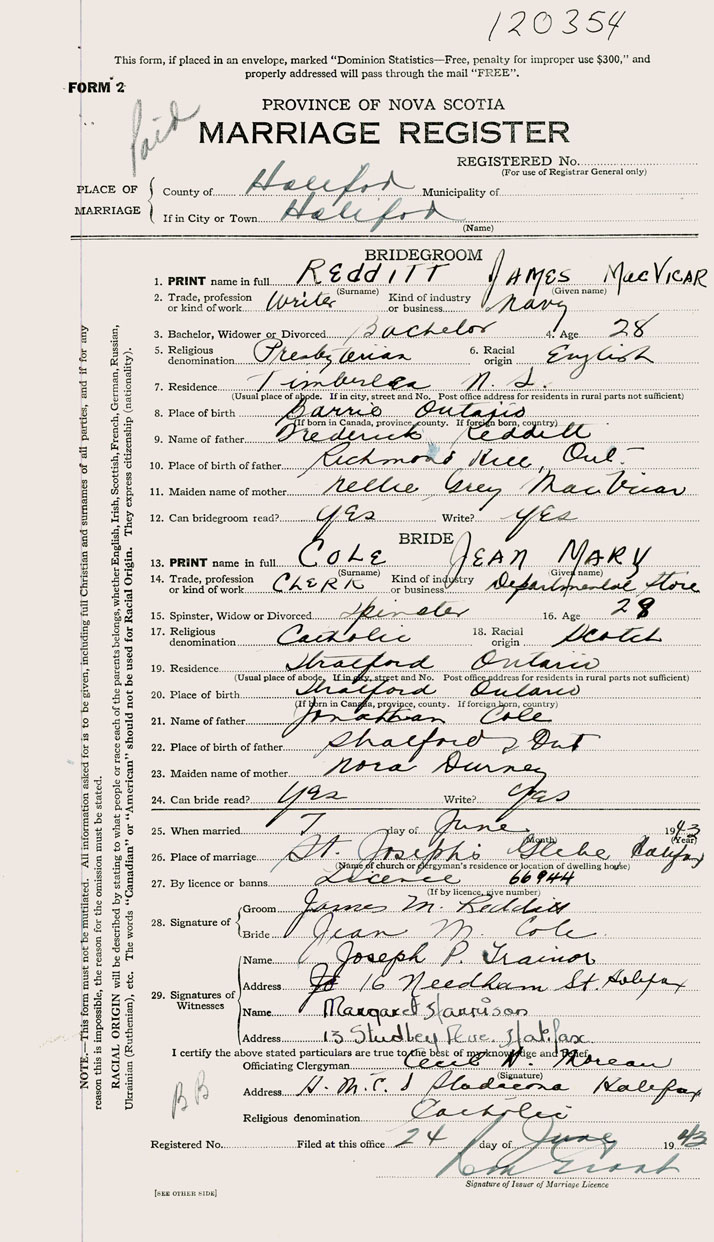 120354
This form, if placed in an envelope, marked "Dominion Statistics—Free, penalty for improper use $300," and
properly addressed will pass through the mail "FREE".
FORM 2
Paid
PROVINCE OF NOVA SCOTIA
MARRIAGE REGISTER
REGISTERED No.
(For use of Registrar General only)
PLACE OF MARRIAGE
County of Halifax Municipality of
If in City or Town Halifax
(Name)
BRIDEGROOM
1. PRINT name in full REDDITT JAMES MacVICAR
(Surname) (Given name)
2. Trade, profession or kind of work Writer Kind of industry or business Navy
3. Bachelor, Widower or Divorced Bachelor 4. Age 28
5. Religious denomination Presbyterian 6. Racial origin English
7. Residence Timberlea N. S.
(Usual place of abode. If in city, street and No. Post office address for residents in rural parts not sufficient)
8. Place of birth Barrie Ontario
(If born in Canada, province, county. If foreign born, country)
9. Name of father Frederick Redditt
10. Place of birth of father Richmond Hill, Ont.
11. Maiden name of mother Nellie Grey MacVicar
12. Can bridegroom read? yes Write? yes
BRIDE
13. PRINT name in full COLE JEAN MARY
(Surname) (Given name)
14. Trade, profession or kind of work CLERK Kind of industry or business Departmental Store
15. Spinster, Widow or Divorced Spinster 16. Age 28
17. Religious denomination Catholic 18. Racial origin Scotch
19. Residence Stratford Ontario
(Usual place of abode. If in city, street and No. Post office address for residents in rural parts not sufficient)
20. Place of birth Stratford Ontario
(If born in Canada, province, county. If foreign born, country)
21. Name of father Jonathan Cole
22. Place of birth of father Stratford, Ont
23. Maiden name of mother Nora Durney
24. Can bride read? Yes Write? Yes
25. When married 7 day of June 1943
(Month) (Year)
26. Place of marriage St. Joseph's Glebe Halifax
(Name of church or clergyman's residence or location of dwelling house)
27. By licence or banns Licence 66944
(If by licence, give number)
28. Signature of
Groom James M. Redditt
Bride Jean M. Cole
29. Signatures of Witnesses
Name Joseph P. Trainor
Address 16 Needham St. Halifax
Name Margaret Harrison
Address 13 Studley Ave. Halifax
I certify the above stated particulars are true to the best of my knowledge and belief.
Officiating Clergyman Cecil Moreau
(Signature)
Address H. M. C. S Stadacona Halifax
BB
Religious denomination Catholic
Registered No. Filed at this office 24 day of June 1943
Grant
Signature of Issuer of Marriage Licence
[SEE OTHER SIDE]
NOTE.—This form must not be mutilated. All information asked for is to be given, including full Christian and surnames of all parties, and if for any
reason this is impossible, the reason for the omission must be stated.
RACIAL ORIGIN will be described by stating to what people or race each of the parents belongs, whether English, Irish, Scottish, French, German, Russian,
Ukrainian (Ruthenian), etc. The words "Canadian" or "American" should not be used for Racial Origin. They express citizenship (nationality).